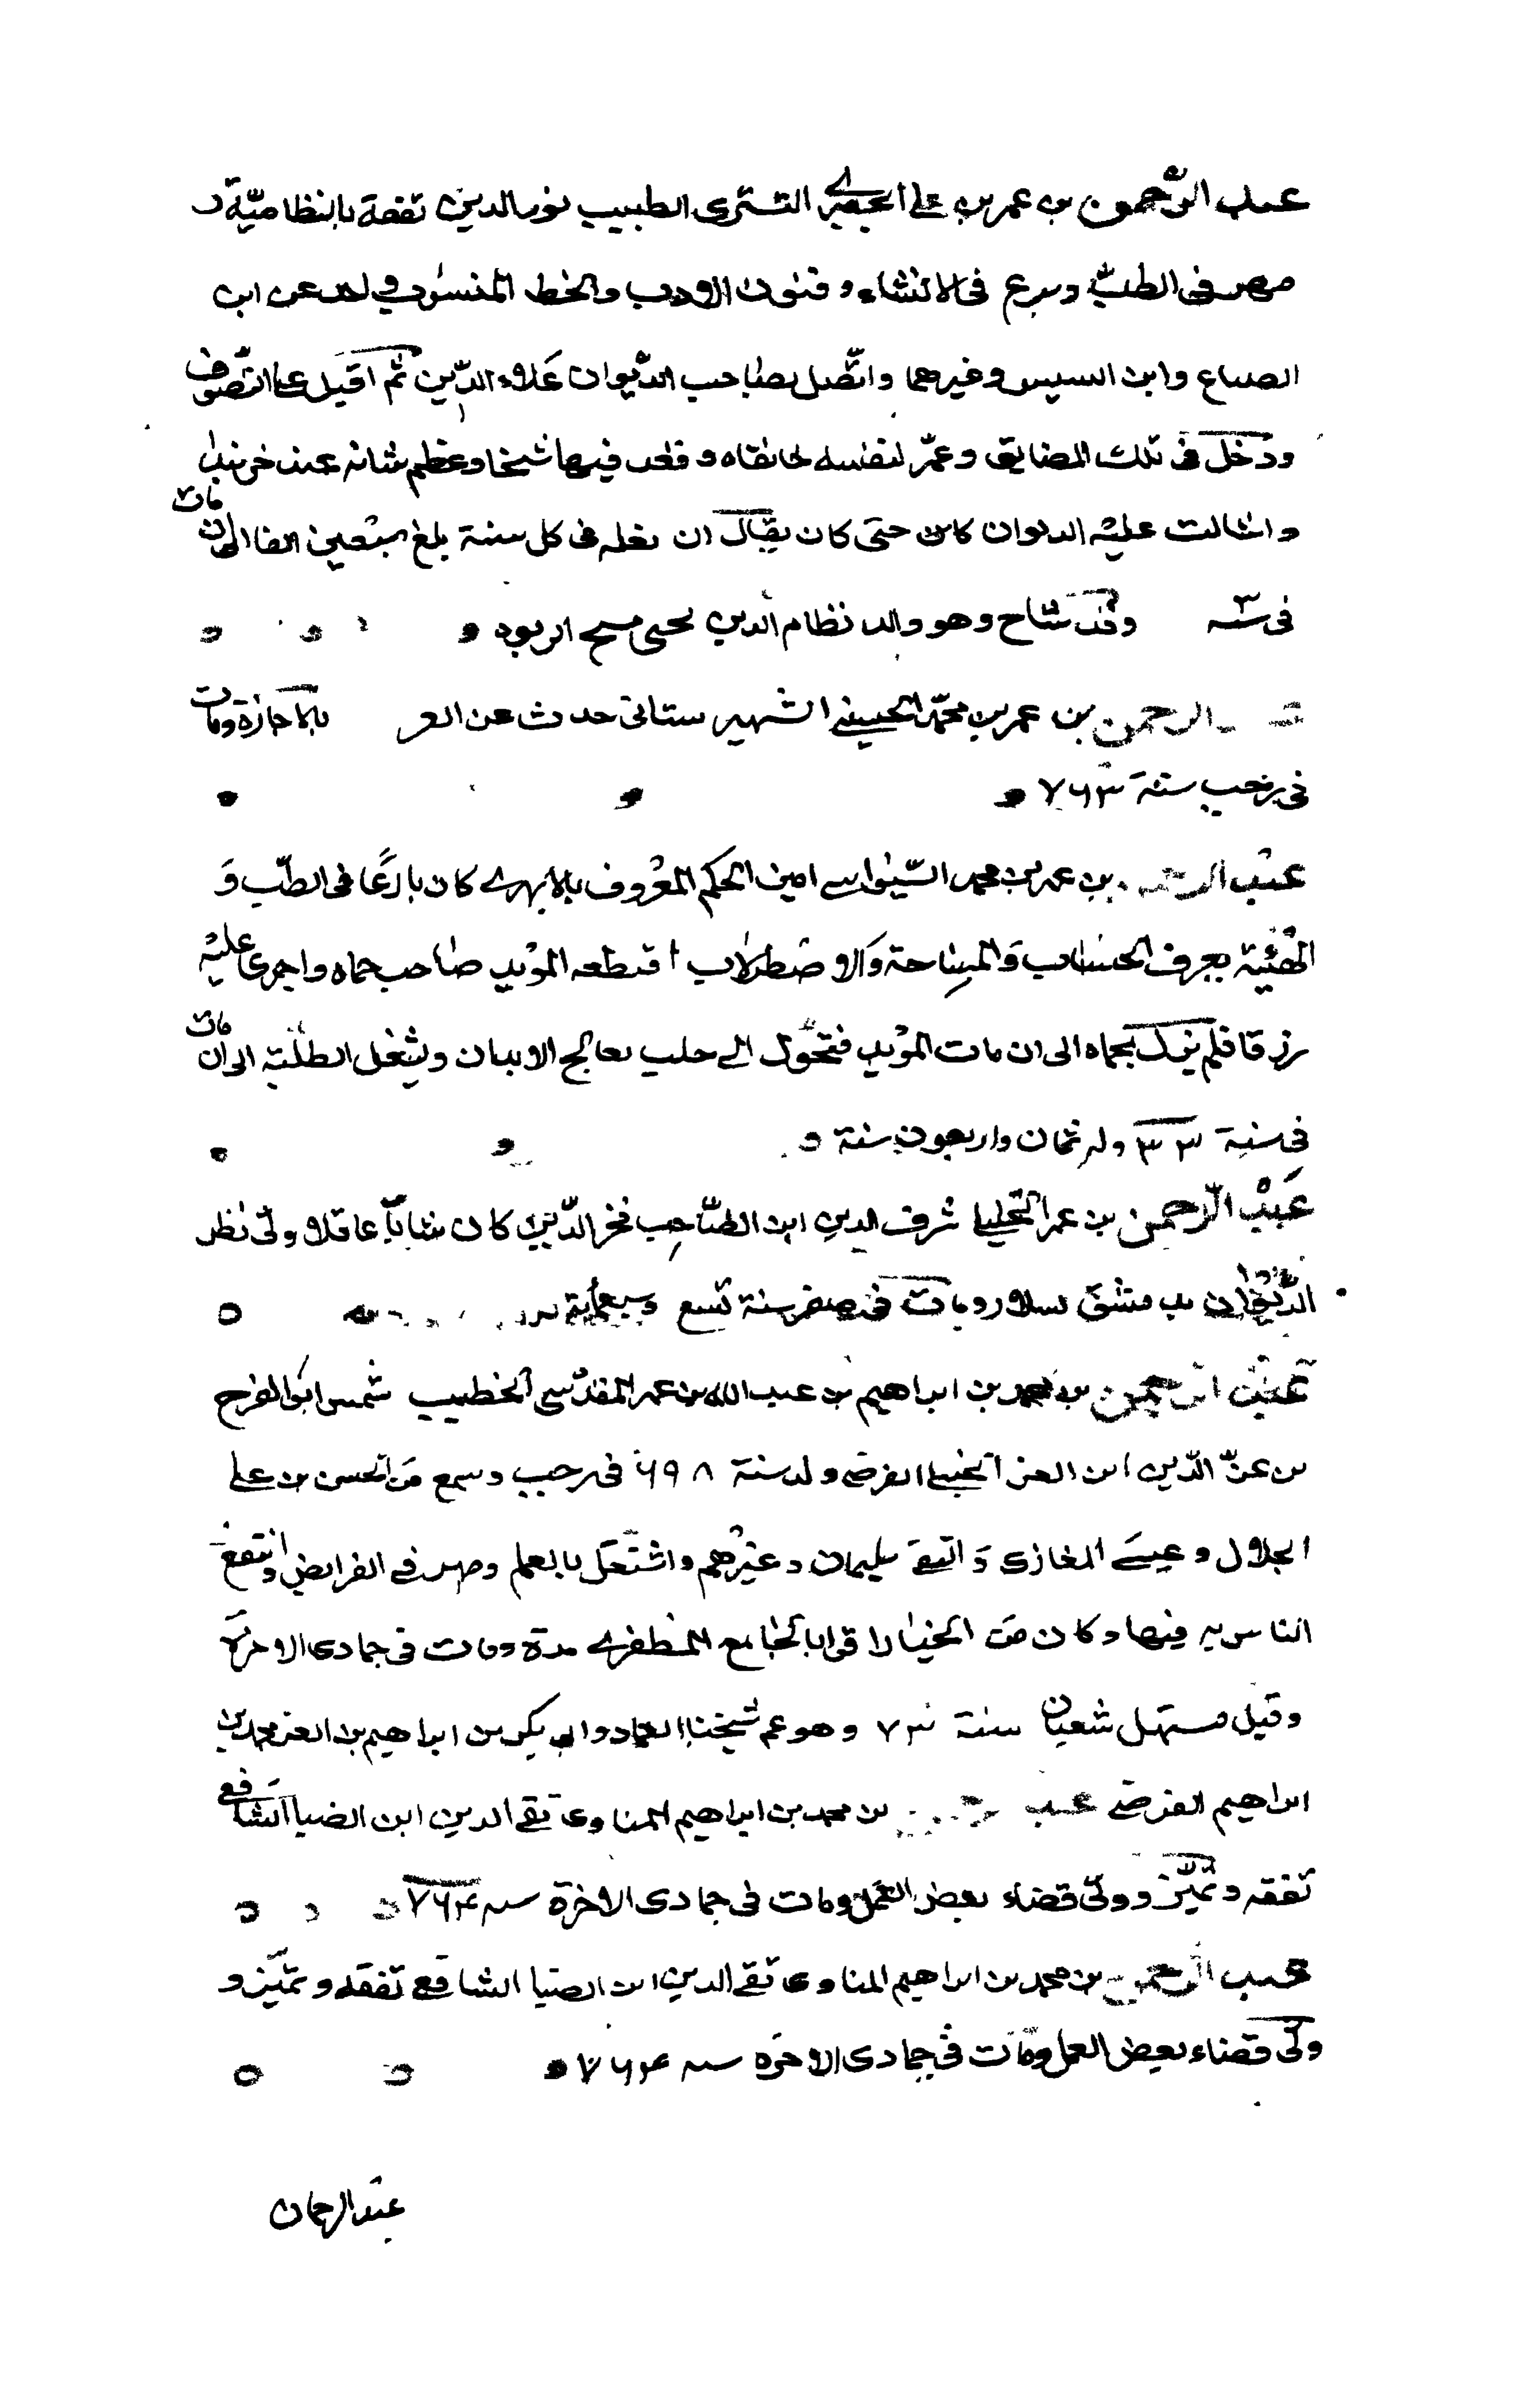 عبد الرحمن بن عمر بن علي الجعفري التستري الطبيب نور الدين تفقه بالنظامية و
مهر في الطب وبرع في الانشاء وفنون الادب والخط المنسوب واخذ عن ابن
الصباغ وابن البسيس وغيرهما واتصل بصاحب الديوان علاء الدين ثم اقبل على التصوف
ودخل في تلك المضايق وعمر لنفسه خانقاه وقعد فيها شيخا وعظم شانه عند خربندا
وانثالت عليه الديوان كان حتى كان يقال ان مغله في كل سنة بلغ سبعين الفا الى ان مات
في سنة وقد شاخ وهو والد نظام الدين يحيى شيخ الربوة
الرحمن بن عمر بن محمد الحسيني الشهرستاني حدث عن العز بالاجازة ومات
في رجب سنة ٧٦٣
عبد الرحمن بن عمر بن محمد السيواسي امين الحكم المعروف بالابهري كان بارعا في الطب و
الهيئة يعرف الحساب والمساحة والاصطرلاب اقتطعه المؤيد صاحب حماه واجرى عليه
رزقا فلم يزل بحماه الى ان مات المؤيد فتحول الى حلب يعالج الابدان ويشغل الطلبة الى ان مات
في سنة ٣٣ وله ثمان واربعون سنة
عبد الرحمن بن عمر الخليلي شرف الدين ابن الصاحب فخر الدين كان شابا عاقلا ولي نظر
الديوان بدمشق بسلار ومات في صفر سنة تسع وسبعماية
عبد الرحمن بن محمد بن ابراهيم بن عبد الله بن عمر المقدسي الخطيب شمس ابو الفرج
بن عز الدين ابن العز الحنبلي الفرضي ولد سنة ٦٩٨ في رجب وسمع من الحسن بن علي
الجلال وعيسى المغازي والتقي سليمان وغيرهم واشتغل بالعلم ومهر في الفرايض وانتفع
الناس به فيها وكان من الخيار اقرا بالجامع المظفري مدة ومات في جمادى الاخرة
وقيل مستهل شعبان سنة ٧٣ وهو عم شيخنا العماد ابي بكر بن ابراهيم بن العز محمد بن
ابراهيم الفرضي عبد الرحمن بن محمد بن ابراهيم المناوي تقي الدين ابن الضيا الشافعي
تفقه وتميز وولي قضاء بعض العمل ومات في جمادى الاخرة سنه ٧٦٤
عبد الرحمن بن محمد بن ابراهيم المناوي تقي الدين ابن الضيا الشافعي تفقه وتميز و
ولي قضاء بعض العمل ومات في جمادى الاخره سنه ٧٦٤
عبد الرحمان